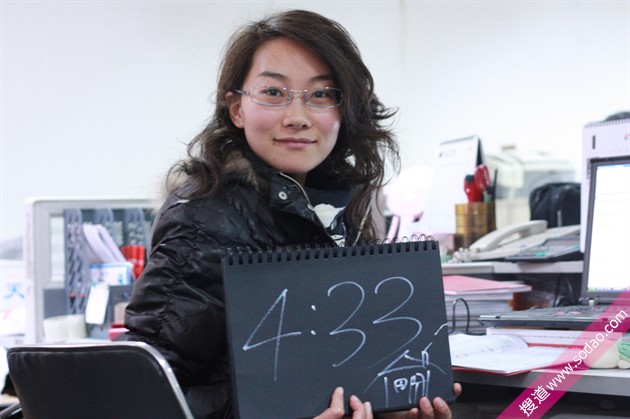 4:33
天
搜道www.sodao.com